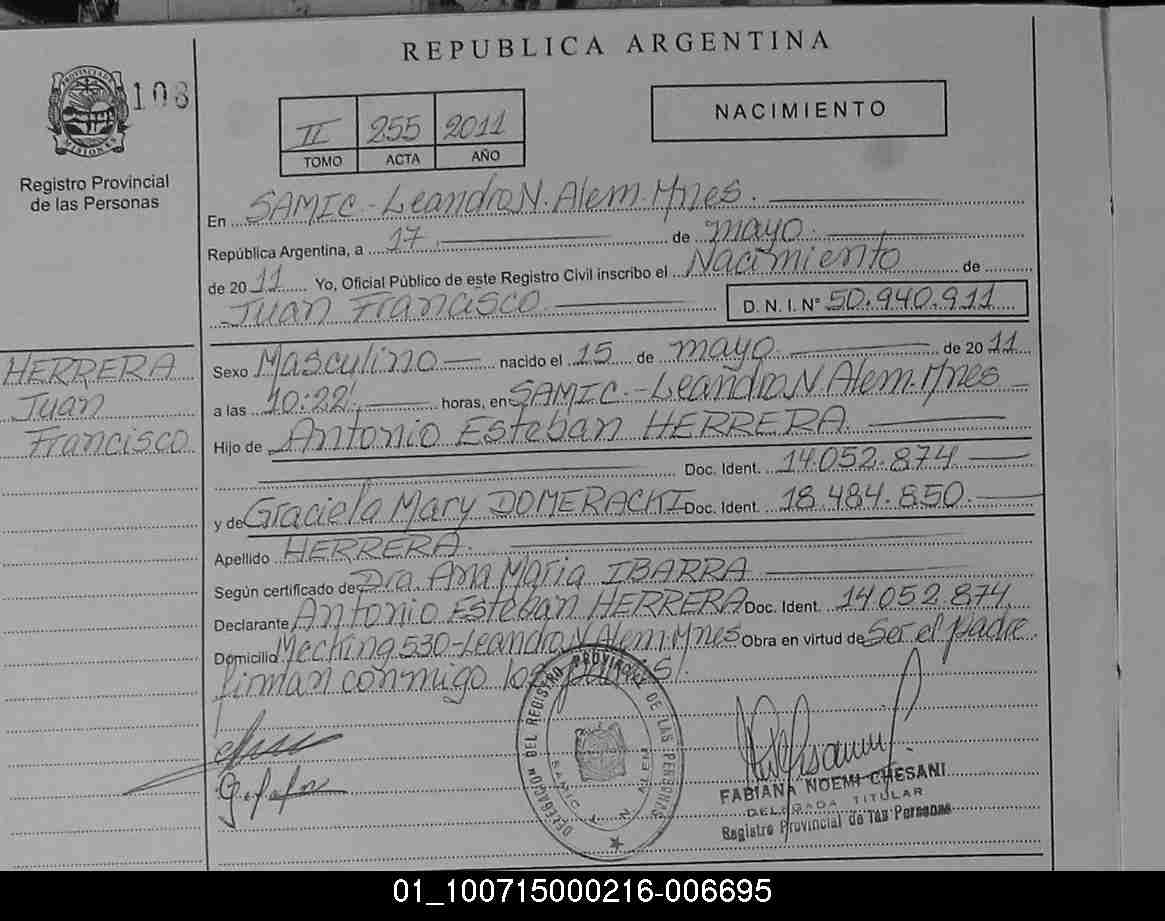 REPUBLICA ARGENTINA
PROVINCIA DE MISIONES
108
Registro Provincial
de las Personas
II 255 2011
TOMO ACTA AÑO
NACIMIENTO
En SAMIC - Leandro N. Alem. Mnes.
República Argentina, a 17 de mayo
de 2011 Yo, Oficial Público de este Registro Civil inscribo el Nacimiento de
Juan Francisco D. N. I. Nº 50.940.911
HERRERA
Juan
Francisco
Sexo Masculino nacido el 15 de mayo de 2011
a las 10:22 horas, en SAMIC - Leandro N. Alem. Mnes
Hijo de Antonio Esteban HERRERA
Doc. Ident. 14.052.874
y de Graciela Mary DOMERACKI Doc. Ident. 18.484.850
Apellido HERRERA
Según certificado de Dra. Ana Maria IBARRA
Declarante Antonio Esteban HERRERA Doc. Ident. 14.052.874
Domicilio Mecking 530 - Leandro N. Alem. Mnes Obra en virtud de Ser el padre.
firman conmigo los
DELEGACION DEL REGISTRO PROVINCIAL DE LAS PERSONAS
SAMIC L. N. ALEM
FABIANA NOEMI CHESANI
DELEGADA TITULAR
Registro Provincial de las Personas
01_100715000216-006695